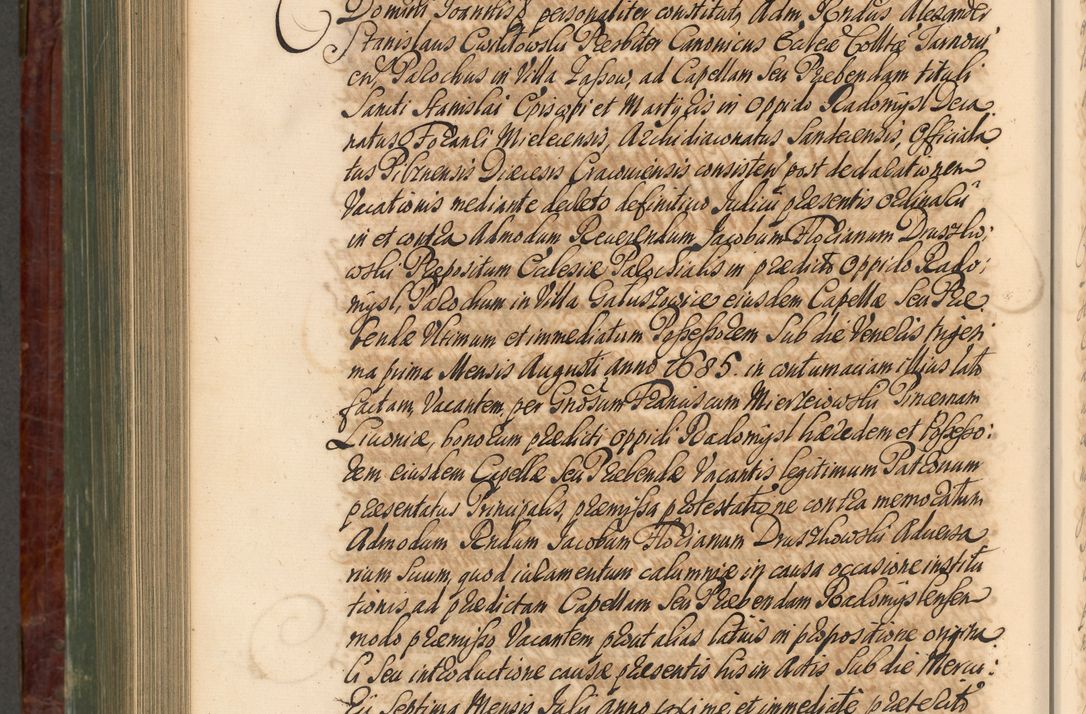 Domini Joannis personaliter constitut, Adm. Rndus Alexander
Stanislaus Presbiter Canonicus Eccleæ Colltæ Tarnovi
en, Parochus in Villa Zassow, ad Capellam seu Præbendam tituli
Sancti Stanislai Episcopi et Martyris in oppido Radomysl Deca
natus Foranli Mielecensis, Archidiaconatus Sandecensis, Officiala
tus Pilznensis Diæcesis Cracoviensis consisten, post declarationem
Vacationis mediante decreto definitivo Judicii præsentis ordinarii
in et contra Admodum Reverendum Jacobum Florianum Druszko:
wski Præpositum Eclesiæ Parochialis in prædicto oppido Rado:
mysl, Parochum in Villa Galuszowice eiusdem Capellæ seu Præ
bendæ Ultimum et immediatum Possessorem sub die Veneris trigesi
ma prima Mensis Augusti anno 1685. in contumaciam illius lato
factam, Vacantem, per Gnosum Franciscum Mierzeiowski Pincernam
Livoniæ, bonorum prædicti oppidi Radomysl hæredem et Possesso:
rem eiusdem Capellæ seu Præbendæ Vacantis legitimum Patronum
præsentatus Principalis, præmissa protestatione contra memoratum
Admodum Rndum Jacobum Florianum Druszkowski Adversa
rium suum, quod iuramentum calumniæ in causa occasione institu
tionis, ad prædictam Capellam seu Præbendam Radomyslensem
modo præmisso Vacantem prout alias latius in propositione origina
li seu introductione causæ præsentis his in Actis sub die Mercu:
rii septima Mensis Julii anno proxime et immediate præterito